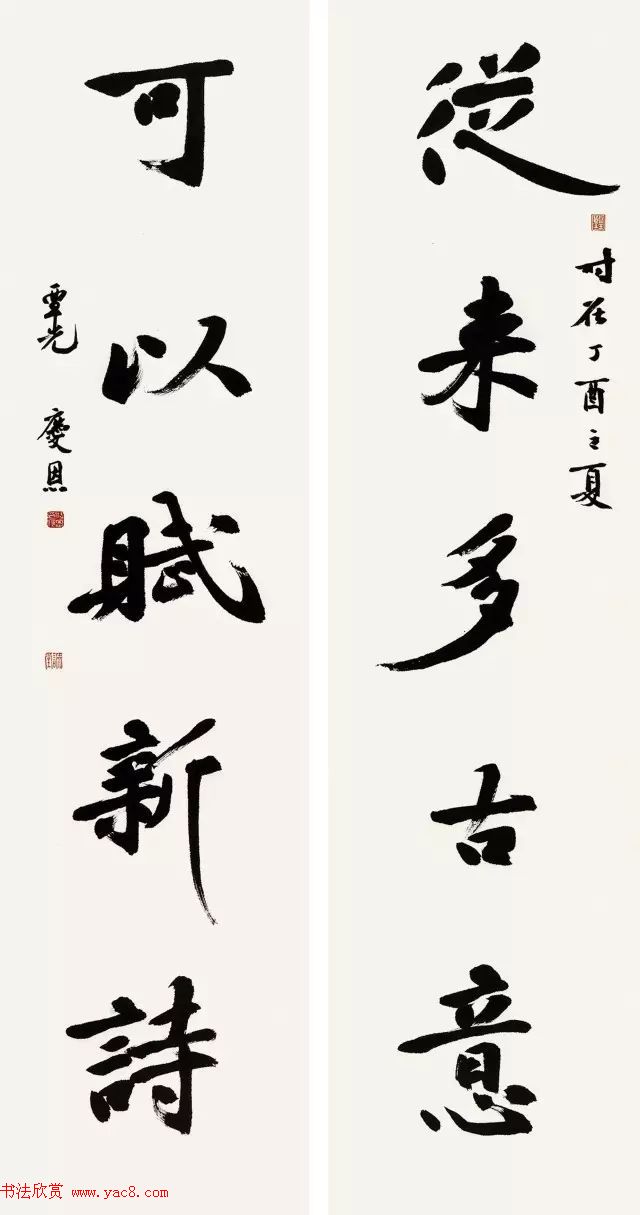 從来多古意
时在丁酉之夏
可以賦新詩
覃光 慶恩
书法欣赏 www.yac8.com